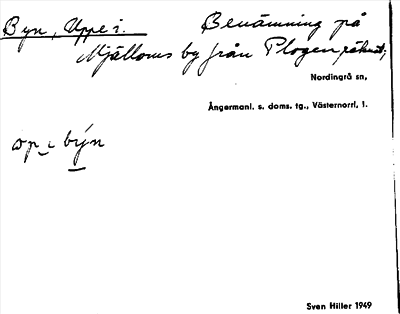 Byn, Uppe i. Benämning på
Mjälloms by från Plogen, räknat;
Nordingrå sn,
Ångermanl. s. doms. tg., Västernorrl. l.
op i býn
Sven Hiller 1949